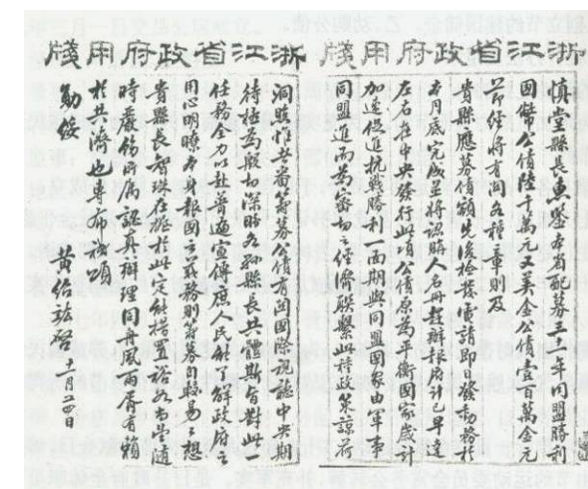 浙江省政府用牋
慎堂縣長惠鑒本省配募三十一年同盟勝利
國幣公債陸千萬元又美金公債壹百萬金元
節經將有關各種章則及
貴縣應募債額先後檢發電請即日發動務於
本月底完成並將認購人名冊趕辦報府計已早達
左右在中央發行此項公債原為平衡國家歲計
加速促進抗戰勝利一面期與同盟國家由軍事
同盟進而共商
經濟聯繫此種政策諒荷
浙江省政府用牋
洞照惟兹番配募公債有關國際視聽中央期
待極為殷切深盼各縣縣長共體斯旨對此
任務全力以赴普遍宣傳庶人民
了解政府之
用心明瞭本身報國之義務則籌募自較易之想
貴縣長智珠在握於此定能措置裕如尚望隨
時嚴飭所屬認真辦理同舟風雨胥有賴
於共濟也專布祗頌
勛綏
黃紹竑啓